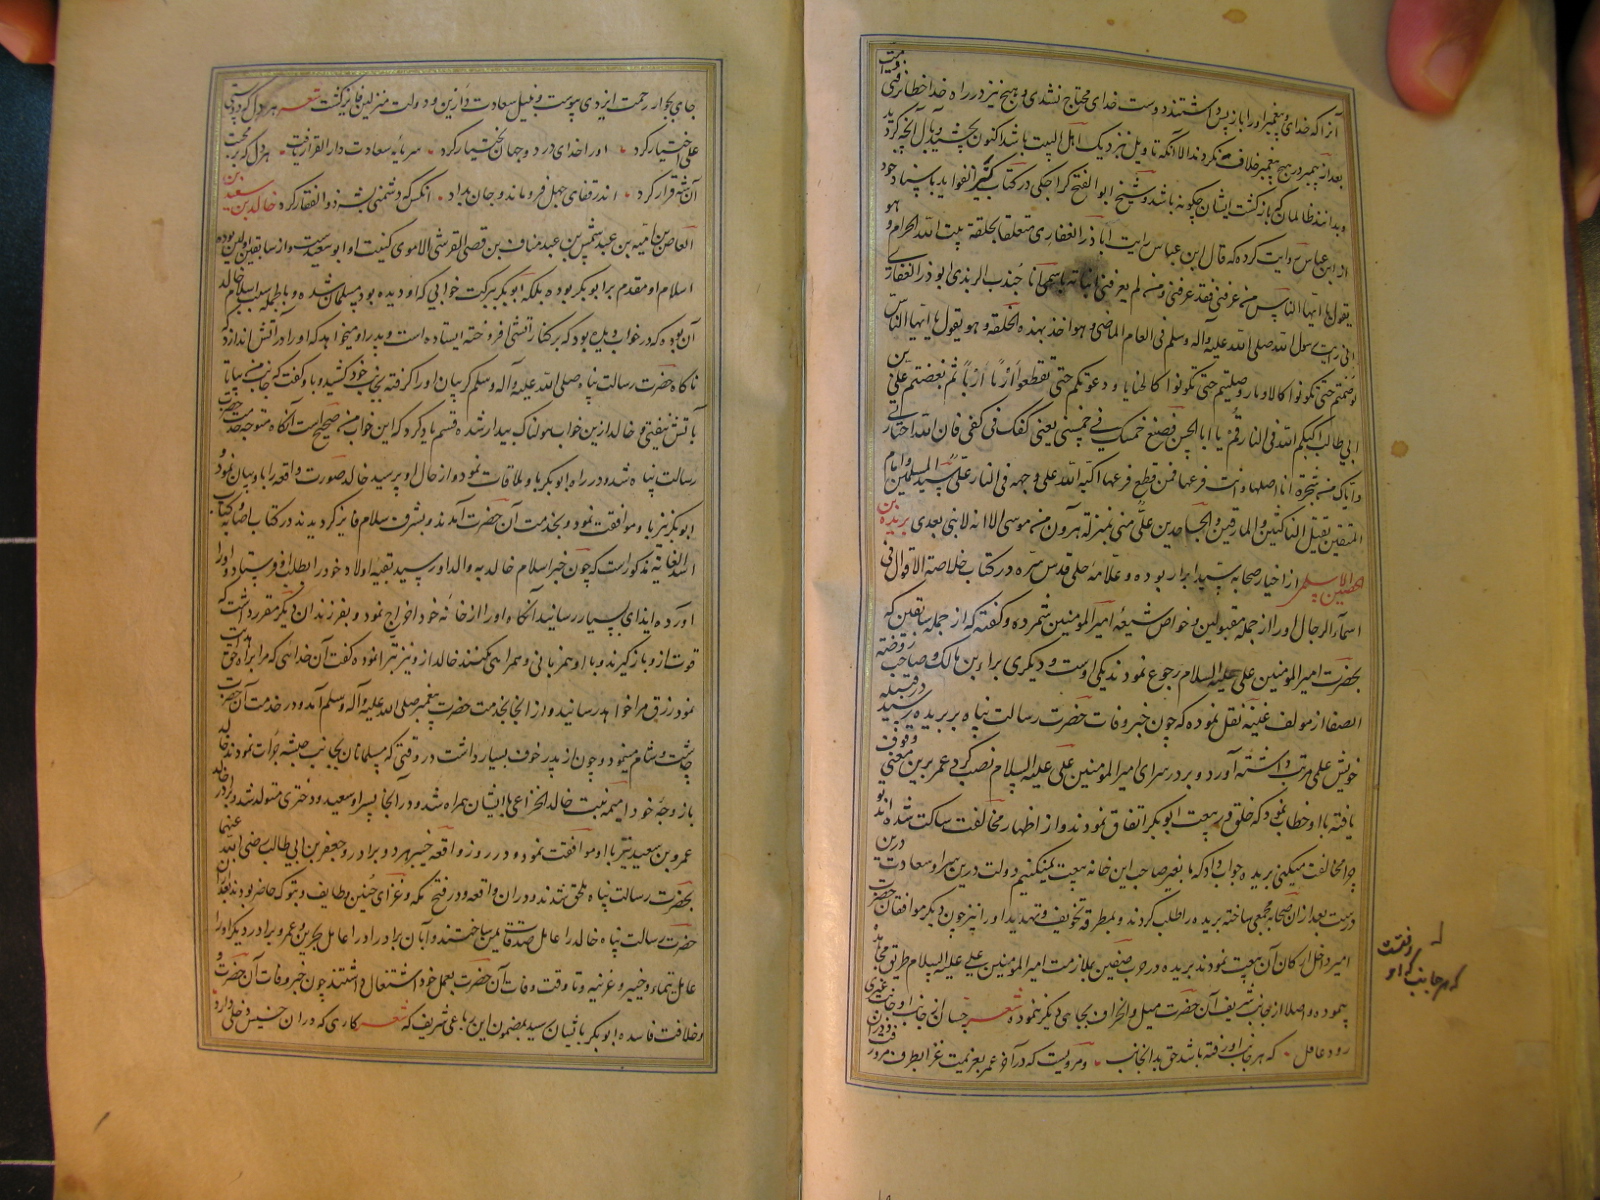 آنرا که خدای و پیغمبر او را باز پس داشتند دوست خدای محتاج نشدی و هیچ نیز در راه خدا خطا نرفتی
بعد از پیغمبر در هیچ پیغمبر خلافت نکردند الا آنکه تاویل نیز دیک اهل البیت باشد اکنون بچشید وبال آنچه کردید
و بدانند ظالمان که بازگشت ایشان چگونه باشد و شیخ ابو الفتح کراجکی در کتاب کنز الفواید باسناد خود
از ابن عباس روایت کرده که قال ابن عباس رایت اباذر الغفاری متعلقا بحلقة بیت الله الحرام و هو
یقول یا ایها الناس من عرفنی فقد عرفنی و من لم یعرفنی انباته باسمی انا جندب الربذی ابو ذر الغفاری
انی رایت رسول الله صلی الله علیه وآله وسلم فی العام الماضی و هو آخذ بهذه الحلقة و هو یقول یا ایها الناس
لو صمتم حتی تکونوا کالاوتار و صلیتم حتی تکونوا کالحنایا و دعوتکم حتی تقطعوا اربا اربا ثم بغضتم علی بن
ابی طالب اکبکم الله فی النار قم یا ابا الحسن فضع خمسک فی خمسی یعنی کفک فی کفی فان الله اختارنی
و ایاک من شجرة انا اصلها و انت فرعها فمن قطع فرعها اکبه الله علی وجهه فی النار علی سید المسلمین و امام
المتقین یقتل الناکثین و المارقین و الجاحدین علی منی بمنزلة هرون من موسی الا انه لا نبی بعدی بریده بن
الحصیب الاسلمی از اخیار صحابه سید ابرار بوده و علامه حلی قدس سره در کتاب خلاصة الاقوال فی
اسماء الرجال او را از جمله مقبولین و خواص شیعه امیرالمومنین شمرده و گفته که از جمله سابقین که
بحضرت امیرالمومنین علی علیه السلام رجوع نمودند یکی اوست و دیگری براء بن مالک و صاحب روضة
الصفا از مولف غنیه نقل نموده که چون خبر وفات حضرت رسالت پناه بر بریده رسید در قبیله
خویش علمی مرتب داشته آورد و بر در سرای امیرالمومنین علی علیه السلام نصب کرد عمر برین معنی وقوف
یافته با او خطاب نمود که خلق در بیعت ابوبکر اتفاق نمودند و از اظهار مخالفت ساکت شده اند تو
چرا مخالفت میکنی بریده جواب داد که ما بغیر صاحب این خانه بیعت نمیکنیم دولت درین سرا و سعادت درین
درست بعد از آن صحابه مجمعی ساخته بریده را طلب کردند و بطرقه تخویف و تهدید او را نیز چون دیگر موافقان حضرت
امیر داخل ارکان آن بیعت نمودند بریده در حرب صفین بملازمت امیرالمومنین علی علیه السلام طریق مجاهده
پیموده و اصلا از جانب شریف آن حضرت میل و انحراف بجای دیگر ننموده شعر
رود عاقل • که هر جانب او رفته باشد حق بدانجانب • و مرویست که در آخر عمر بعزیمت غزا بطرف مرو رفت
رفته
که هر جانب که او
جای بجوار رحمت ایزدی پیوست و بنیل سعادت دارین و دولت منزلین فایز گشت شعر هر دل که دوستی
علی اختیار کرد • او را خدای در دو جهان بختیار کرد • سرمایه سعادت دار القرار یافت • هر دل که بر محبت
آن شه قرار کرد • اندر قفای جهل فرو ماند و جان نداد • آنکس که دشمنی شه ذو الفقار کرد خالد بن سعید بن
العاص بن امیه بن عبد شمس بن عبد مناف بن قصی القرشی الاموی کنیت او ابو سعیدست و از سابقین اولین بوده
اسلام او مقدم بر ابوبکر بوده بلکه ابوبکر ببرکت خوابی که او دیده بود مسلمان شده و بالجمله سبب اسلام خالد
آن بوده که در خواب دیده بود که بر کنار آتشی افروخته ایستاده است و پدر او میخواهد که او را در آتش اندازد
ناگاه حضرت رسالت پناه صلی الله علیه وآله وسلم گریبان او را گرفته بجانب خود کشید و با و گفت که بجانب من بیا تا
بآتش نیفتی و خالد ازین خواب هولناک بیدار شده قسم یاد کرد که این خواب من صحیح است آنگاه متوجه خدمت حضرت
رسالت پناه شد و در راه ابوبکر با و ملاقات نمود و از حال او پرسید خالد صورت واقعه را با و بیان نمود و
ابوبکر نیز با و موافقت نمود و بخدمت آن حضرت آمدند و بشرف سلام فایز گردیدند در کتاب اصابه و کتاب
اسد الغابه مذکور است که چون خبر اسلام خالد به والد او رسید بقیه اولاد خود را بطلب او فرستاد و او را
آورده ایذای بسیار رسانید آنگاه او را از خانه خود اخراج نمود و بفرزندان دیگر مقرر داشت که
قوت از و باز گیرند و با او همزبانی و همراهی نکنند خالد از و نیز تبرا نموده گفت آن خدایی که مرا براه حق هدایت
نمود رزق مرا خواهد رسانید و از آنجا بخدمت حضرت پیغمبر صلی الله علیه وآله وسلم آمد و در خدمت آن حضرت
چاشت و شام مینمود و چون از پدر خوف بسیار داشت در وقتی که مسلمانان بجانب حبشه هجرات نمودند خالد
با زوجه خود امیمه بنت خالد الخزاعی با ایشان همراه شد و در آنجا پسر او سعید و دختری متولد شد و برادر خالد
عمرو بن سعید نیز با او موافقت نمود و در روز واقعه خیبر هر دو برادر و جعفر بن ابی طالب رضی الله عنهما
بحضرت رسالت پناه ملحق شدند و در آن واقعه و در فتح مکه و غزای حنین و طایف و تبوک حاضر بودند بعد از آن
حضرت رسالت پناه خالد را عامل صدقات یمن ساختند و ابان برادر او را عامل بحرین و عمرو برادر دیگر او را
عامل تیماء و خیبر و عرنیه و تا وقت وفات آن حضرت بعمل خود اشتغال داشتند چون خبر وفات آن حضرت و
خلافت فاسده ابوبکر باشیان سید بمضمون این رباعی شریف که شعر کاری که در آن خسیس دخلی دارد